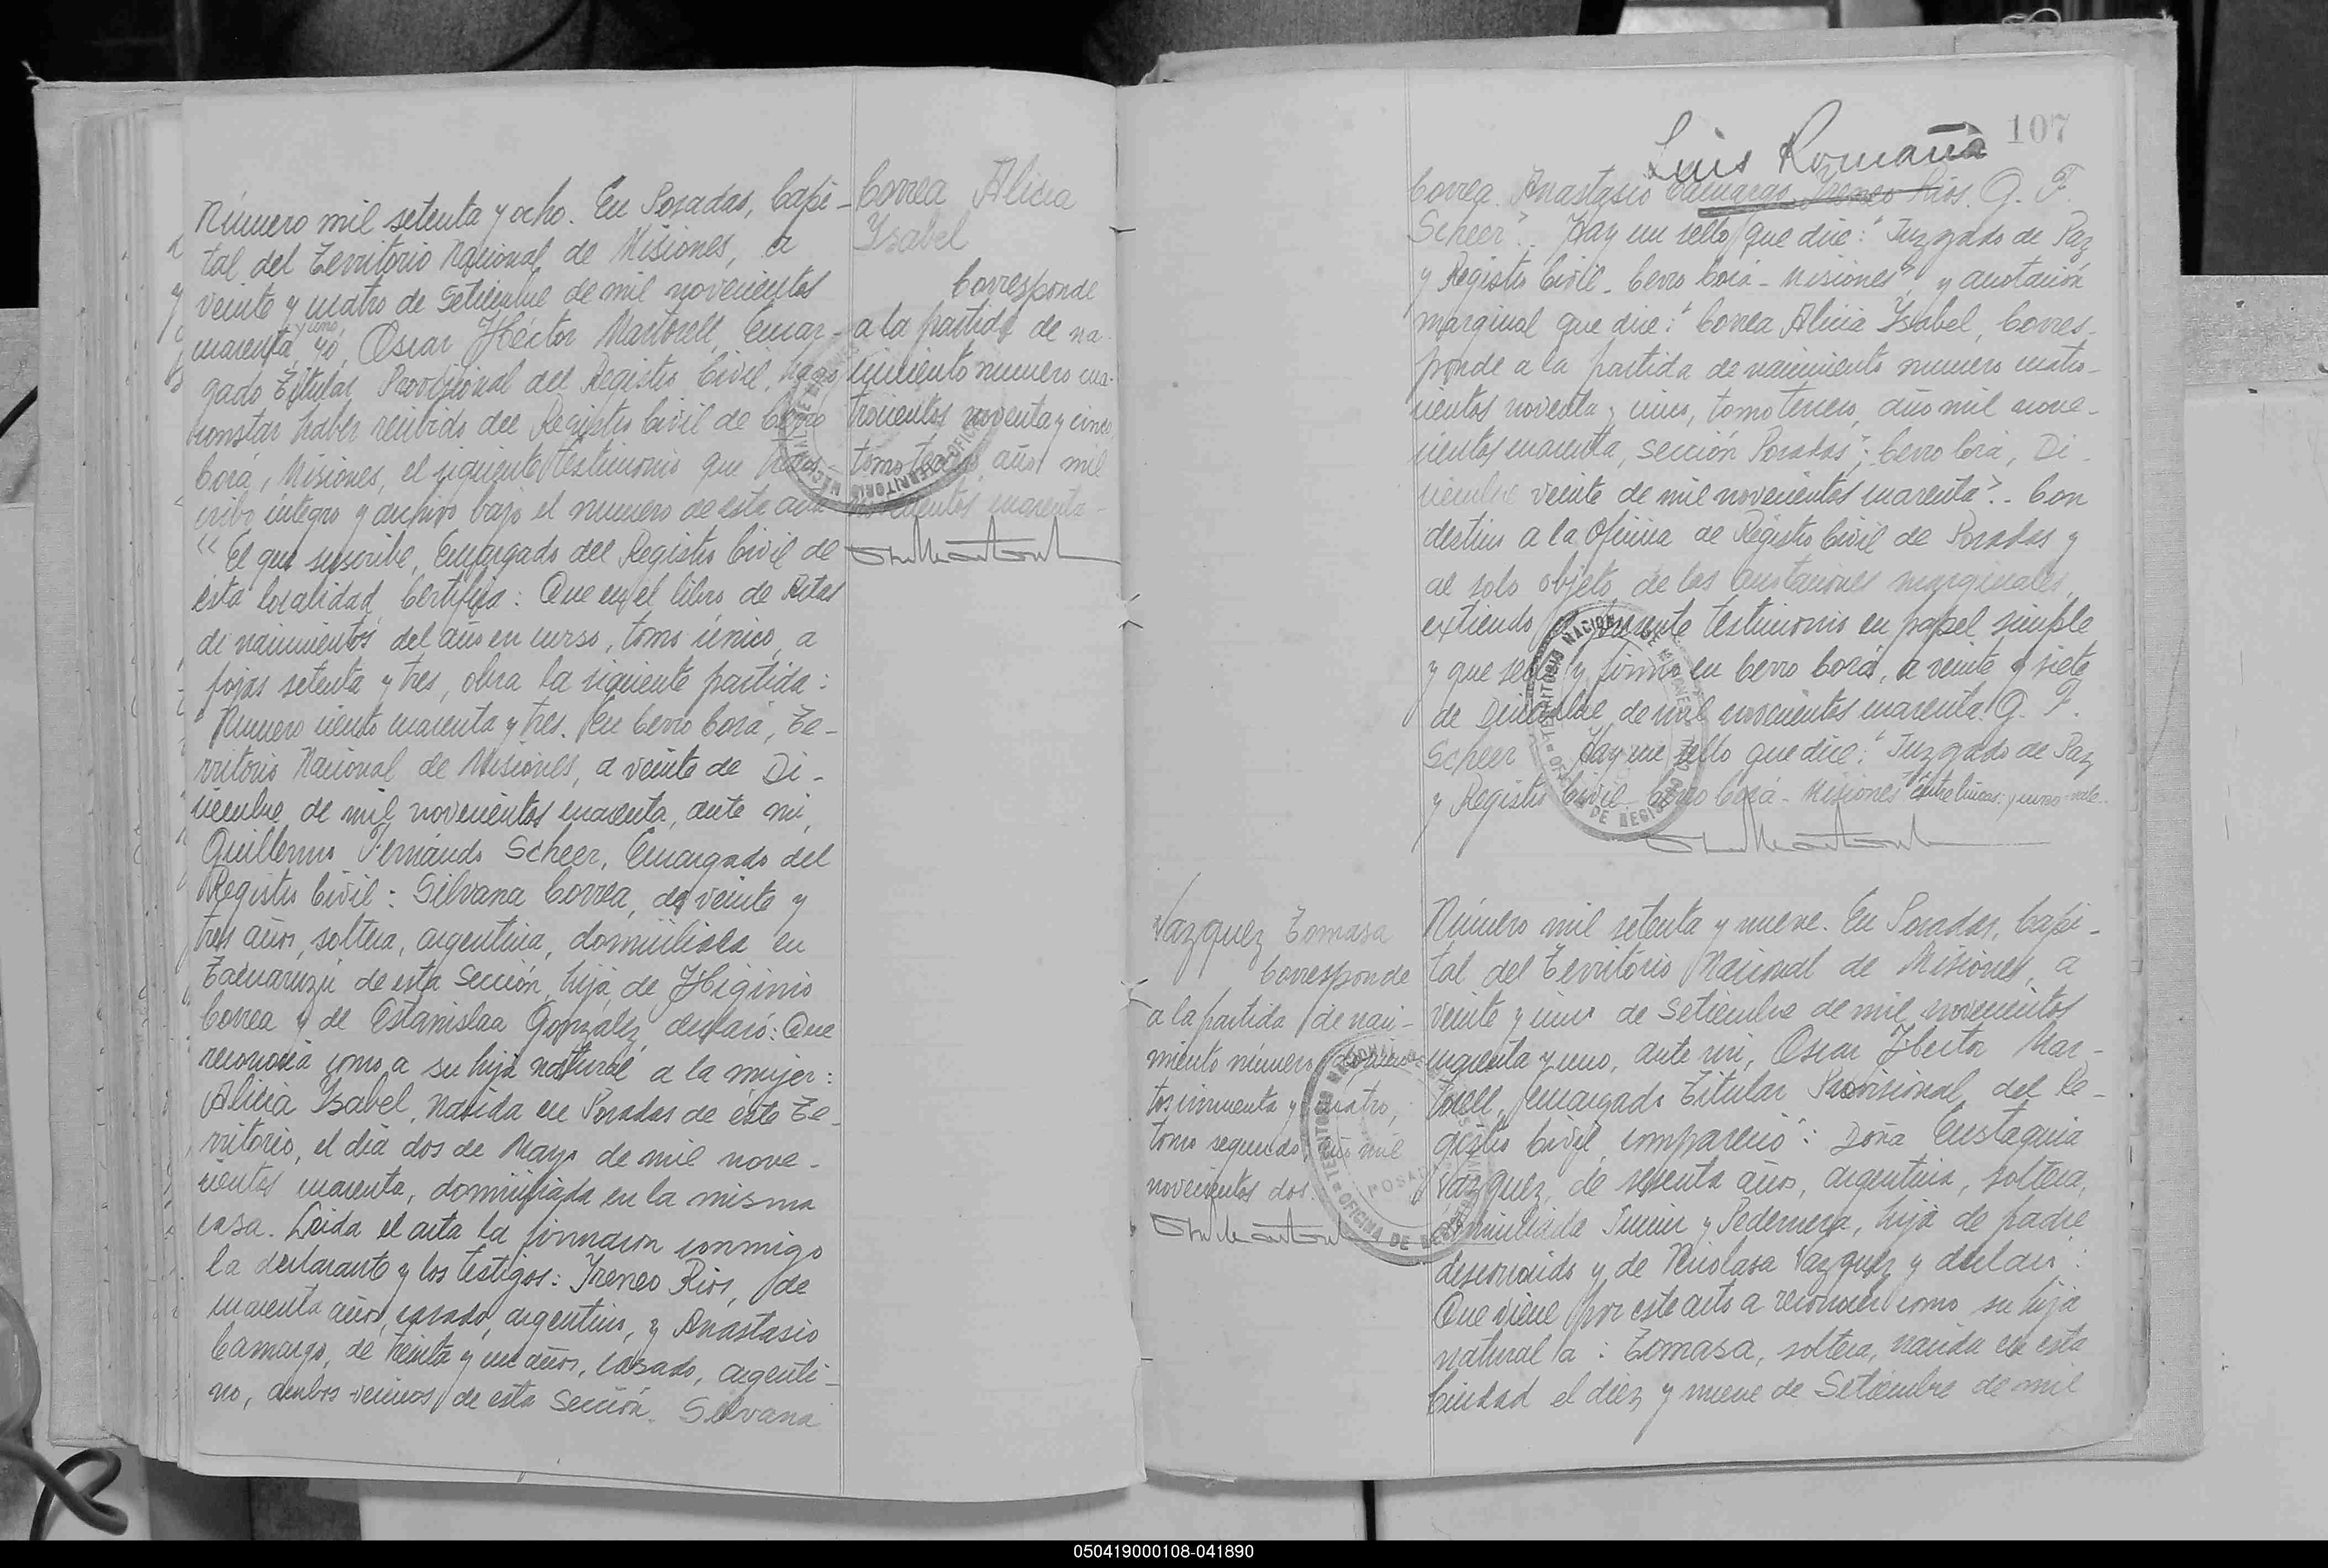 Número mil setenta y ocho. En Posadas, Capi-
tal del Territorio Nacional de Misiones, a
veinte y cuatro de Setiembre de mil novecientos
cuarenta y uno, yo, Oscar Héctor Martorell, Encar-
gado Titular Provisional del Registro Civil, hago
constar haber recibido del Registro Civil de Cerro
Corá, Misiones, el siguiente testimonio que trans-
cribo íntegro y archivo bajo el numero de esta acta
"El que suscribe, Encargado del Registro Civil de
esta localidad, Certifica: Que en el libro de Actas
de nacimientos del año en curso, tomo único, a
fojas setenta y tres, obra la siguiente partida:
"Numero ciento cuarenta y tres. En Cerro Corá, Te-
rritorio Nacional de Misiones, a veinte de Di-
ciembre de mil novecientos cuarenta, ante mi,
Guillermo Fernando Scheer, Encargado del
Registro Civil: Silvana Correa, de veinte y
tres años, soltera, argentina, domiciliada en
de esta Sección, hija de Higinio
Correa y de Estanislaa González, declaró: Que
reconocía como a su hija natural a la mujer:
Alicia Ysabel, nacida en Posadas de éste Te-
rritorio, el día dos de Mayo de mil nove-
cientos cuarenta, domiciliada en la misma
casa. Leida el acta la firmaron conmigo
la declarante y los testigos: Yreneo Rios, de
cuarenta años, casado, argentino, y Anastasio
Camargo, de treinta y un años, casado, argenti-
no, ambos vecinos de esta Sección. Silvana
Correa Alicia
Ysabel
Corresponde
a la partida de na-
cimiento numero cua-
trocientos noventa y cinco
tomo tercero, año mil
novecientos cuarenta-
107
Luis Romaña
Correa. Anastasio Camargo. Yreneo Rios. G. F.
Scheer". Hay un sello que dice: "Juzgado de Paz
y Registro Civil. Cerro Corá - Misiones" y anotación
marginal que dice: "Correa Alicia Ysabel, Corres-
ponde a la partida de nacimiento numero cuatro-
cientos noventa y cinco, tomo tercero, año mil nove-
cientos cuarenta, Sección Posadas"; Cerro Corá, Di-
ciembre veinte de mil novecientos cuarenta". Con
destino a la Oficina de Registro Civil de Posadas y
al solo objeto de las anotaciones marginales,
extiendo el presente testimonio en papel simple
y que sello y firmo en Cerro Corá, a veinte y siete
de Diciembre de mil novecientos cuarenta. G. F.
Scheer Hay un sello que dice: "Juzgado de Paz
y Registro Civil. Cerro Corá - Misiones" entre lineas: y uno-vale.
Vazquez Tomasa
Corresponde
a la partida de naci-
miento número doscien-
tos cincuenta y cuatro,
tomo segundo, año mil
novecientos dos.
Número mil setenta y nueve. En Posadas, Capi-
tal del Territorio Nacional de Misiones, a
veinte y cinco de Setiembre de mil novecientos
cuarenta y uno, ante mi, Oscar Hector Mar-
torell, Encargado Titular Provisional del Re-
gistro Civil, compareció: Doña Eustaquia
Vazquez, de sesenta años, argentina, soltera,
domiciliada Junin y Pedernera, hija de padre
desconocido y de Nicolasa Vazquez y declaró:
Que viene por este acto a reconocer como su hija
natural a: Tomasa, soltera, nacida en esta
Ciudad el diez y nueve de Setiembre de mil
050419000108-041890